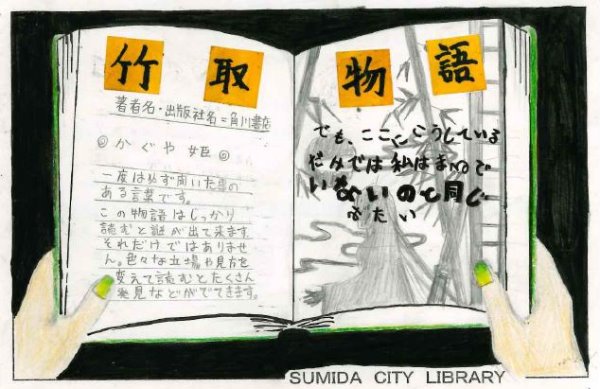 竹取物語
著者名・出版社名=角川書店
◎かぐや姫◎
一度は必ず聞いた事の
ある言葉です。
この物語はじっかり
読むと謎が出て来ます
それだけではありませ
ん。色々な立場や見方を
変えて読むとたくさん
発見などがでてきます。
でも、ここにこうしている
だけでは私はまるで
いないのと同じ
みたい
SUMIDA CITY LIBRARY